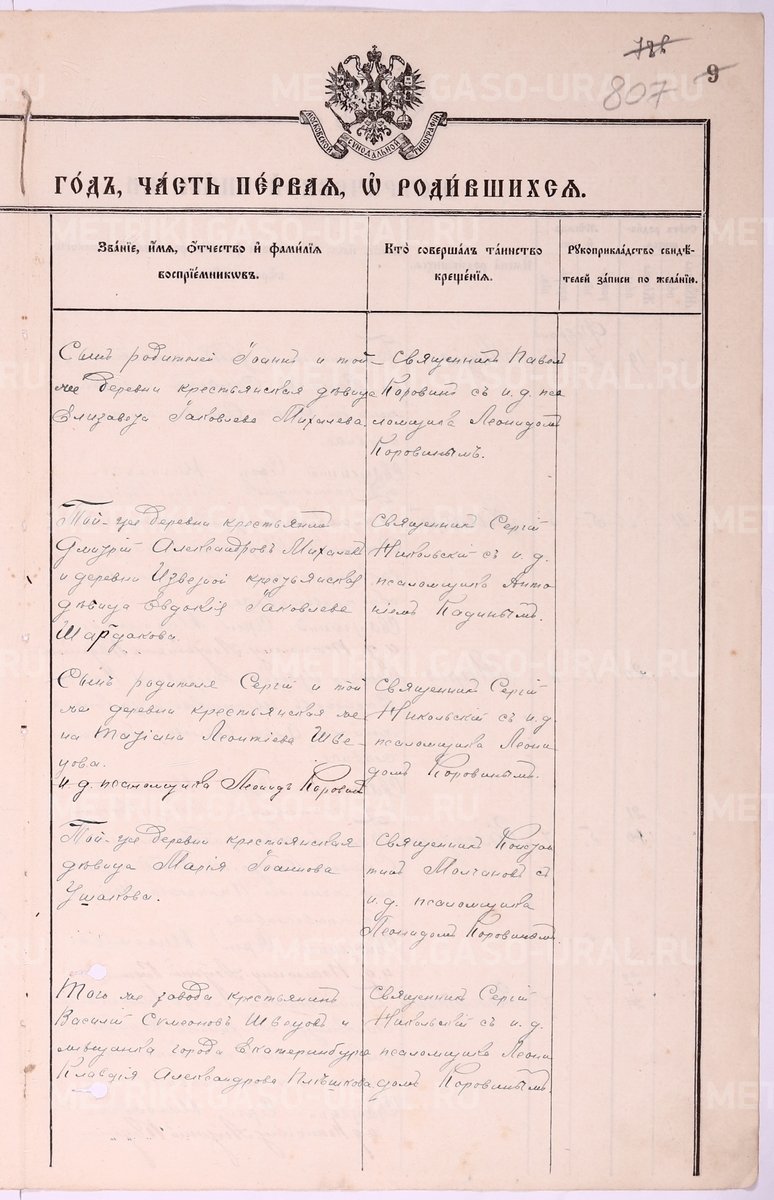 788
807
9
МОСКОВСКОЙ СѴНОДАЛЬНОЙ ТИПОГРАФІИ
ГО́ДЪ, ЧА́СТЬ ПЕ́РВАЯ, Ѡ҆ РОДИ́ВШИХСѦ.
Зва́нїе, и҆́мѧ, ѻ҆́тчество и҆ фами́лїѧ
воспрїе́мникѡвъ.
Кто̀ соверша́лъ та́инство
креще́нїѧ.
Рꙋкоприкла́дство свидѣ́-
телей за́писи по жела́нїю.
Сынъ родителей Іоаннъ и той-
же деревни крестьянская дѣвица
Елизавета Іаковлева Михалева.
Священникъ Павелъ
Коровинъ съ и. д. пса
ломщика Леонидомъ
Коровинымъ.
Той-же деревни крестьянинъ
Дмитрій Александровъ Михалевъ
и деревни крестьянская
дѣвица Евдокія Іаковлева
Шардакова.
Священникъ Сергій
Никольскій съ и. д.
псаломщика Анто
ніемъ Кадинымъ.
Сынъ родителя Сергій и той
же деревни крестьянская же
на Татіана Леонтіева Шве
цова.
и. д. псаломщика Леонидъ Коровинъ
Священникъ Сергій
Никольскій съ и. д.
псаломщика Леони
домъ Коровинымъ.
Той-же деревни крестьянская
дѣвица Марія Іоаннова
Ушакова.
Священникъ Констан
тинъ Молчановъ съ
и. д. псаломщика
Леонидомъ Коровинымъ
Того же завода крестьянинъ
Василій Симеоновъ Швецовъ и
мѣщанка города Екатеринбурга
Клавдія Александрова Плѣшкова
Священникъ Сергій
Никольскій съ и. д.
псаломщика Леони
домъ Коровинымъ.
METRIKI.GASO-URAL.RU